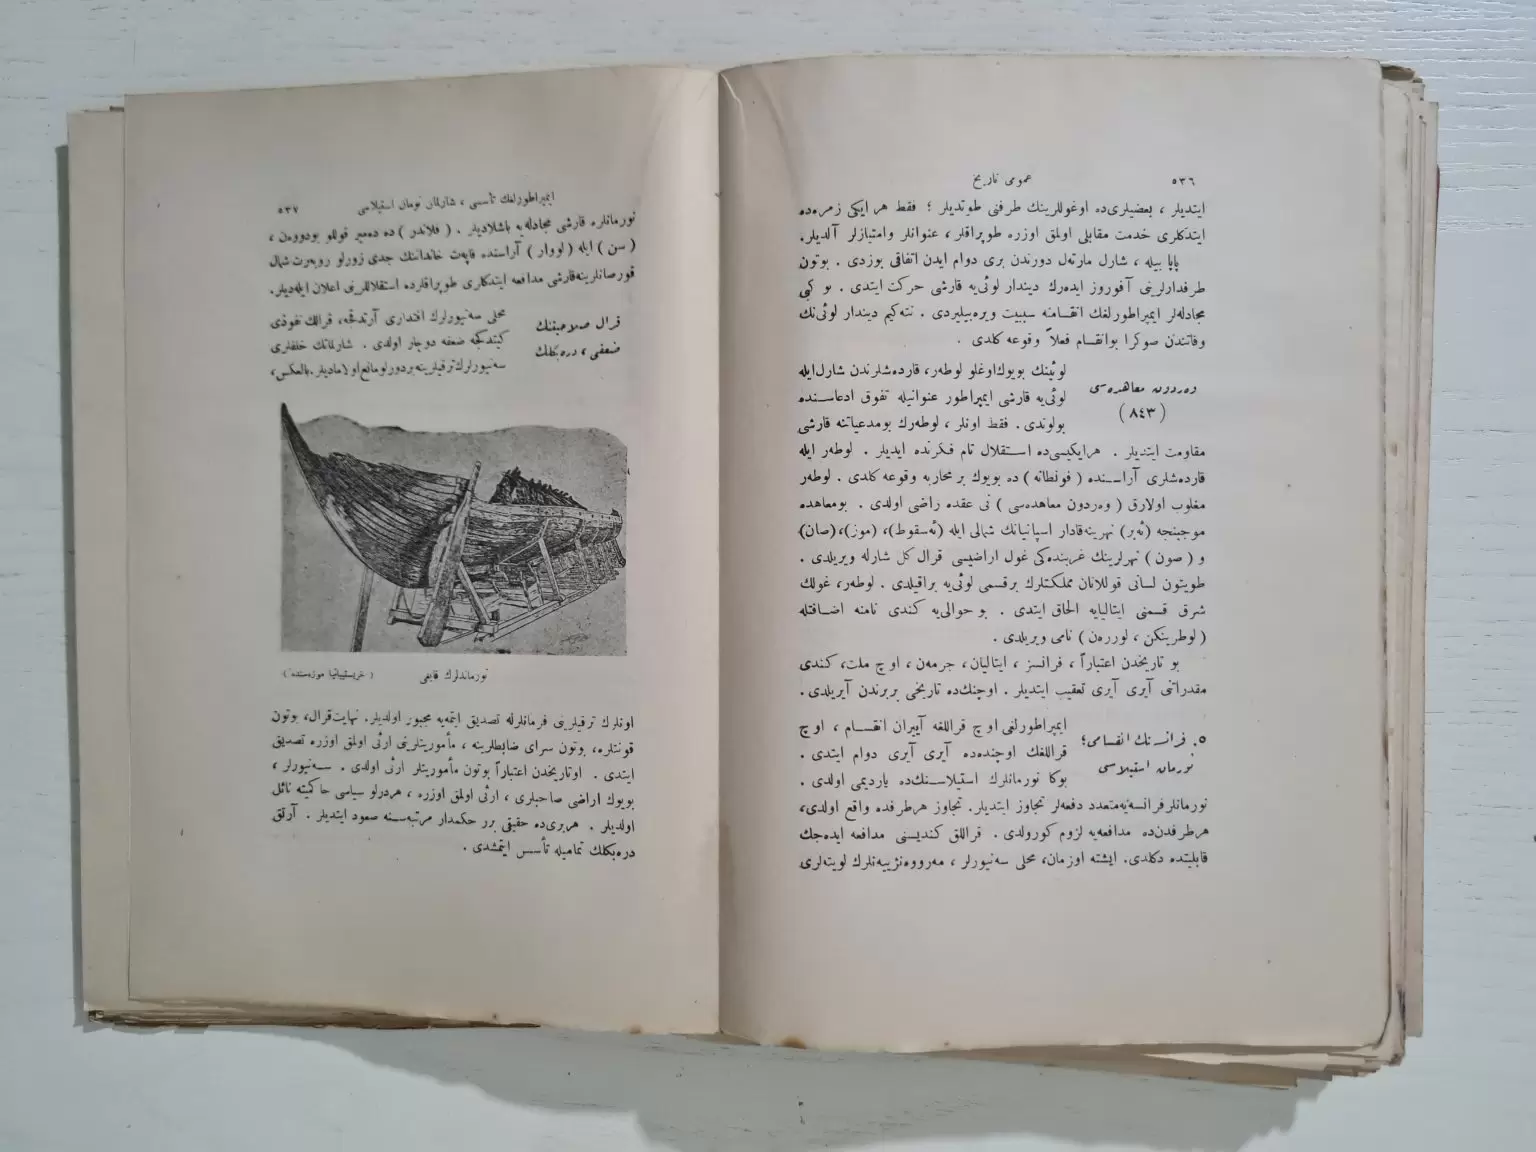 ٥٣٦
عمومی تاریخ
ایتدیلر ، بعضیلری‌ده اوغوللرینك طرفنی طوتدیلر ؛ فقط هر ایکی زمره‌ده
ایتدکلری خدمت مقابلی اولمق اوزره طوپراقلر ، عنوانلر وامتیازلر آلدیلر.
پاپا بیله ، شارل مارته‌ل دورندن بری دوام ایدن اتفاقی بوزدی . بوتون
طرفدارلرینی آفوروز ایده‌رك دیندار لوئی‌یه قارشی حرکت ایتدی . بو کبی
مجادله‌لر ایمپراطورلغك انقسامنه سببیت ویره‌بیلیردی . نته‌کیم دیندار لوئی‌نك
وفاتندن صوکرا بوانقسام فعلاً وقوعه کلدی .
وه‌ردون معاهده‌سی
( ٨٤٣ )
لوئینك بویوك‌اوغلو لوطه‌ر، قارده‌شلرندن شارل‌ایله
لوئی‌یه قارشی ایمپراطور عنوانیله تفوق ادعاسنده
بولوندی . فقط اونلر ، لوطه‌رك بومدعیاتنه قارشی
مقاومت ایتدیلر . هرایکیسی‌ده استقلال تام فکرنده ایدیلر . لوطه‌ر ایله
قارده‌شلری آراسنده ( فونطانه ) ده بویوك بر محاربه وقوعه کلدی . لوطه‌ر
مغلوب اولارق ( وه‌ردون معاهده‌سی ) نی عقده راضی اولدی . بومعاهده
موجبنجه (ئه‌بر) نهرینه‌قادار اسپانیانك شمالی ایله (ئه‌سقوط)، (موز)، (صان)
و ( صون ) نهرلرینك غربنده‌کی غول اراضیسی قرال کل شارله ویریلدی .
طویتون لسانی قوللانان مملکتلرك برقسمی لوئی‌یه براقیلدی . لوطه‌ر، غولك
شرق قسمنی ایتالیایه الحاق ایتدی . بو حوالی‌یه کندی نامنه اضافتله
( لوطرینکن ، لوره‌ن ) نامی ویریلدی .
بو تاریخدن اعتباراً ، فرانسز ، ایتالیان، جرمه‌ن ، اوچ ملت، کندی
مقدراتنی آیری آیری تعقیب ایتدیلر . اوچنك‌ده تاریخی بربرندن آیریلدی .
٥. فرانسه‌نك انقسامی؛
نورمان استیلاسی
ایمپراطورلغی اوچ قراللغه آییران انقسام ، اوچ
قراللغك اوچنده‌ده آیری آیری دوام ایتدی .
بوکا نورمانلرك استیلاسنك‌ده یاردیمی اولدی .
نورمانلرفرانسه‌یه‌متعدد دفعه‌لر تجاوز ایتدیلر. تجاوز هرطرفده واقع اولدی،
هرطرفدن‌ده مدافعه‌یه لزوم کورولدی . قراللق کندیسنی مدافعه ایده‌جك
قابلیتده دکلدی. ایشته اوزمان، محلی سه‌نیورلر ، مه‌رووه‌نژییه‌نلرك لویته‌لری
ایمپراطورلغك تأسسی ، شارلمان نورمان استیلاسی
٥٣٧
نورمانلره قارشی مجادله‌یه باشلادیلر . ( فلاندر ) ده ده‌میر قوللو بودووه‌ن ،
( سن ) ایله ( لووار ) آراسنده قاپه‌ت خانداننك جدی زورلو روبه‌رت شمال
قورصانلرینه‌قارشی مدافعه ایتدکلری طوپراقلرده استقلاللرینی اعلان ایله‌دیلر.
قرال صلاحیتنك
ضعفی ، دره‌بکلك
محلی سه‌نیورلرك اقتداری آرتدقچه، قراللك نفوذی
کیتدکجه ضعفه دوچار اولدی . شارلمانك خلفلری
سه‌نیورلرك‌ترقیلرینه‌بردورلومانع‌اولامادیلر.بالعکس،
نورماندلرك قایغی
( خریستییانیا موزه‌سنده )
اونلرك ترفیلرینی فرمانلرله تصدیق ایتمه‌یه مجبور اولدیلر. نهایت‌قرال، بوتون
قونتلره، بوتون سرای ضابطلرینه ، مأموریتلرینی ارثی اولمق اوزره تصدیق
ایتدی . اوتاریخدن اعتباراً بوتون مأموریتلر ارثی اولدی . سه‌نیورلر ،
بویوك اراضی صاحبلری ، ارثی اولمق اوزره ، هردرلو سیاسی حاکمیته نائل
اولدیلر . هربری‌ده حقیقی برر حکمدار مرتبه‌سنه صعود ایتدیلر . آرتق
دره‌بکلك تمامیله تأسس ایتمشدی .